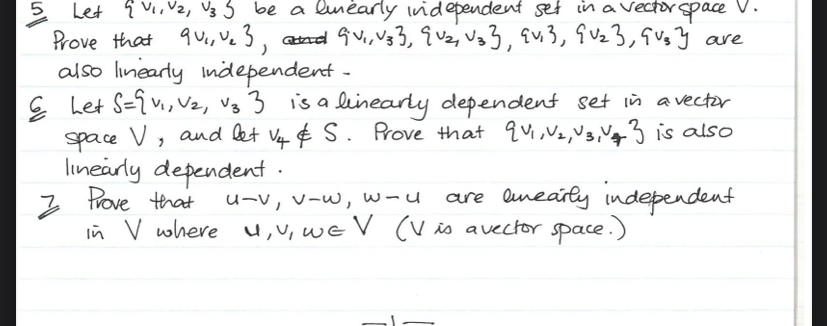 5 Let {v₁, v₂, v₃} be a linearly independent set in a vector space V.
Prove that {v₁, v₂}, and {v₁, v₃}, {v₂, v₃}, {v₁}, {v₂}, {v₃} are
also linearly independent -
6 Let S={v₁, v₂, v₃} is a linearly dependent set in a vector
space V, and let v₄ ∉ S. Prove that {v₁, v₂, v₃, v₄} is also
linearly dependent.
7 Prove that u-v, v-w, w-u are linearly independent
in V where u, v, w ∈ V (V is a vector space.)
—1—